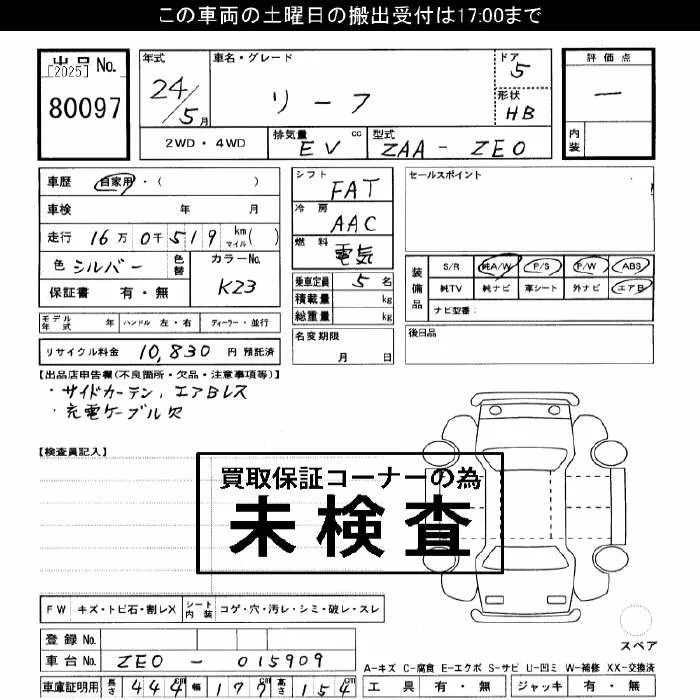 この車両の土曜日の搬出受付は17:00まで
出品 No.
[2025]
80097
年式
24/5月
車名・グレード
リーフ
ドア
5
形状
HB
評価点
ー
内装
2WD・4WD
排気量 cc
EV
型式
ZAA-ZEO
車歴 自家用・( )
車検 年 月
走行 16万0千519 km マイル ( )
色 シルバー 色替
カラーNo.
K23
保証書 有・無
シフト
FAT
冷房
AAC
燃料
電気
乗車定員 5 名
積載量 kg
総重量 kg
名変期限
月 日
セールスポイント
装備品
S/R 純A/W P/S P/W ABS
純TV 純ナビ 革シート 外ナビ エアB
ナビ型番:
後日品
モデル年式 年 ハンドル 左・右 ディーラー・並行
リサイクル料金 10,830 円 預託済
【出品店申告欄(不良箇所・欠品・注意事項等)】
・サイドカーテン、エアBレス
・充電ケーブル欠
【検査員記入】
買取保証コーナーの為
未検査
FW キズ・トビ石・割レX シート内装 コゲ・穴・汚レ・シミ・破レ・スレ
登録 No.
車台 No. ZEO - 015909
車庫証明用 長さ 444 cm 幅 177 cm 高さ 154 cm
スペア
A-キズ C-腐食 E-エクボ S-サビ U-凹ミ W-補修 XX-交換済
工具 有・無 ジャッキ 有・無